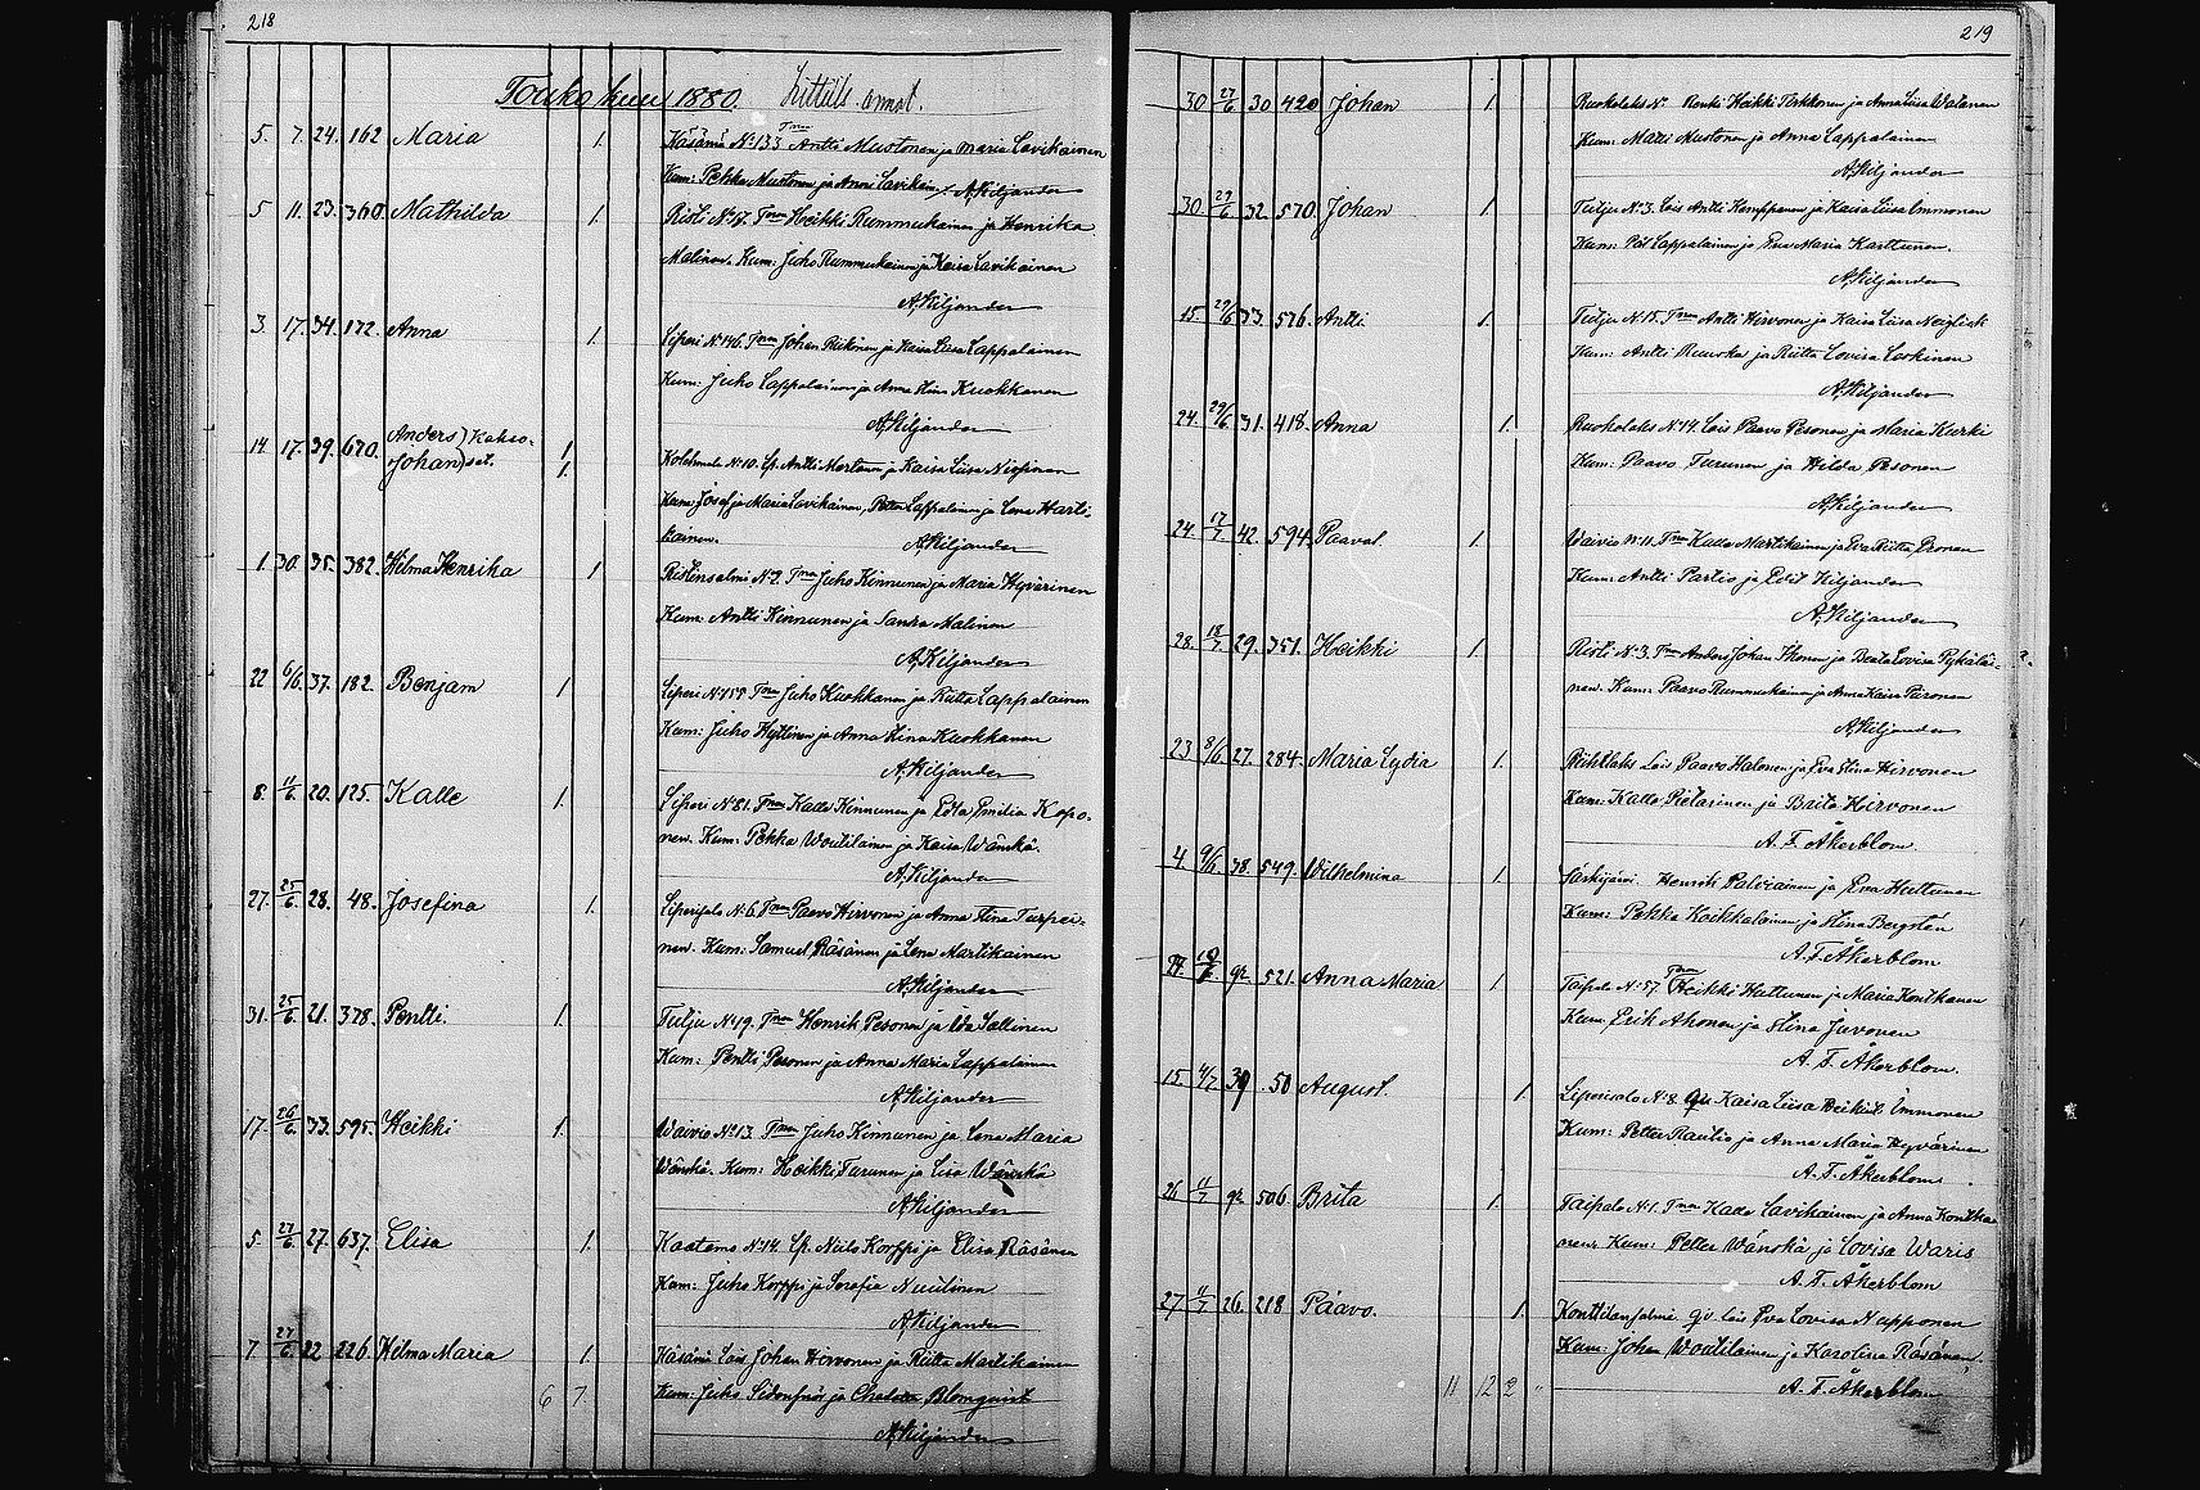 218
Toukokuu 1880.
5. 7. 24. 162 Maria 1. Käsämä No 133 Tnen Antti Mustonen ja Maria Lavikainen
Kum: Pekka Mustonen ja Anni Lavikain. A. Kiljander
5 11. 23. 360. Mathilda 1. Risti No 17. Tnen Heikki Rummukainen ja Henrika
Malinen. Kum: Juho Rummukainen ja Kaisa Lavikainen
A. Kiljander
3. 17. 34. 172. Anna 1. Liperi No 146. Tnen Johan Riikonen ja Kaisa Liisa Lappalainen
Kum: Juho Lappalainen ja Anna Stina Kuokkanen
A. Kiljander
14 17. 39. 670. Anders) Kakso-
Johan) set. 1. 1. No 10. Lp. Antti ja Kaisa Liisa
Kum: Josef ja Maria Lavikainen, Petter Lappalainen ja Lena Harti-
kainen. A. Kiljander
1. 30. 35. 382. Hilma Henrika 1 Ristinsalmi No 2. Tnen Juho Kinnunen ja Maria Hyvärinen
Kum: Antti Kinnunen ja Sanra Malinen
A. Kiljander
22 6/6. 37. 182. Benjam 1 Liperi No 155 Tnen Juho Kuokkanen ja Riitta Lappalainen
Kum: Juho Hyttinen ja Anna Stina Kuokkanen
A. Kiljander
8. 11/6. 20. 125. Kalle 1. Liperi No 81. Tnen Kalle Kinnunen ja Edla Emilia Kopo-
nen. Kum: Pekka Woutilainen ja Kaisa Wänskä.
A. Kiljander
27. 25/6. 28. 48. Josefina 1. Liperisalo No 6. Tnen Paavo Hirvonen ja Anna Stina Turpei-
nen. Kum: Samuel Räsänen ja Lena Martikainen
A. Kiljander
31. 25/6. 21. 378. Pentti. 1. Tutju No 19. Tnen Henrik Pesonen ja Ida Sallinen
Kum: Pentti Pesonen ja Anna Maria Lappalainen
A. Kiljander
17. 26/6. 33. 595. Heikki 1. Waivio No 13. Tnen Juho Kinnunen ja Lena Maria
Wänskä. Kum: Heikki Turunen ja Lisa Wänskä
A. Kiljander
5. 27/6. 27. 637. Elisa 1. Kaatamo No 14. Lp. Niilo Korppi ja Elisa Räsänen
Kum: Juho Korppi ja Serafia Nuutinen
A. Kiljander
7 27/6. 22 226. Hilma Maria 1. Käsämä Lois Johan Hirvonen ja Riitta Martikainen
6 7. Kum: Juho ja Blomqvist
A. Kiljander
219
30 27/6 30 420 Johan 1. Ruokolaks No Renki Heikki Pekkonen ja Anna Liisa Watanen
Kum: Matti Mustonen ja Anna Lappalainen
A. Kiljander
30. 27/6 32. 570. Johan 1. Tutju No 3. Lois Antti Kemppanen ja Kaisa Liisa Immonen
Kum: Pål Lappalainen ja Eva Maria Karttunen.
A. Kiljander
15. 29/6 33. 576. Antti 1. Tutju No 15. Tnen Antti Hirvonen ja Kaisa Liisa Neiglick
Kum: Antti Ruuska ja Riitta Lovisa Laskinen
A. Kiljander
24. 29/6 31. 418. Anna 1. Ruokolaks No 14. Lois Paavo Pesonen ja Maria Kurki
Kum: Paavo Turunen ja Hilda Pesonen
A. Kiljander
24. 17/7. 42. 594. Paavol. 1. Waivio No 11. Tnen Kalle Martikainen ja Eva Riitta Eronen
Kum: Antti Partio ja Edit Kiljander
A. Kiljander
28. 18/7. 29. 351. Heikki 1. Risti No 3. Tnen Anders Johan Ikonen ja Beata Lovisa Pykäläi-
nen. Kum: Paavo Rummukainen ja Anna Kaisa Piironen
A. Kiljander
23 8/6. 27. 284. Maria Lydia 1. Riihilaks Lois Paavo Halonen ja Eva Stina Hirvonen
Kum: Kalle Pietarinen ja Brita Hirvonen
A. F. Åkerblom.
4. 9/6. 38. 549. Wilhelmina 1. Särkijärvi. Henrik Palviainen ja Eva Huttunen
Kum: Pekka Koikkalainen ja Stina Bergstén
A. F. Åkerblom
gr. 521. Anna Maria 1. Taipale No 57. Tnen Heikki Huttunen ja Maria Kontkanen
Kum. Erik Ahonen ja Stina Juvonen
A. F. Åkerblom.
15. 4/7 39 50 August. 1. Liperisalo No 8. Kaisa Liisa Immonen
Kum: Petter Rautio ja Anna Maria Hyvärinen
A. F. Åkerblom
26 11/7 gr. 506. Brita 1. Taipale No 1. Tnen Kalle Lavikainen ja Anna Kontka-
nen. Kum: Petter Wänskä ja Lovisa Waris
A. F. Åkerblom
27 11/7 26. 218 Paavo. 1. Konttilansalmi lois Eva Lovisa Nupponen
Kum: Johan Woutilainen ja Karolina Räsänen.
11 12 2 " A. F. Åkerblom